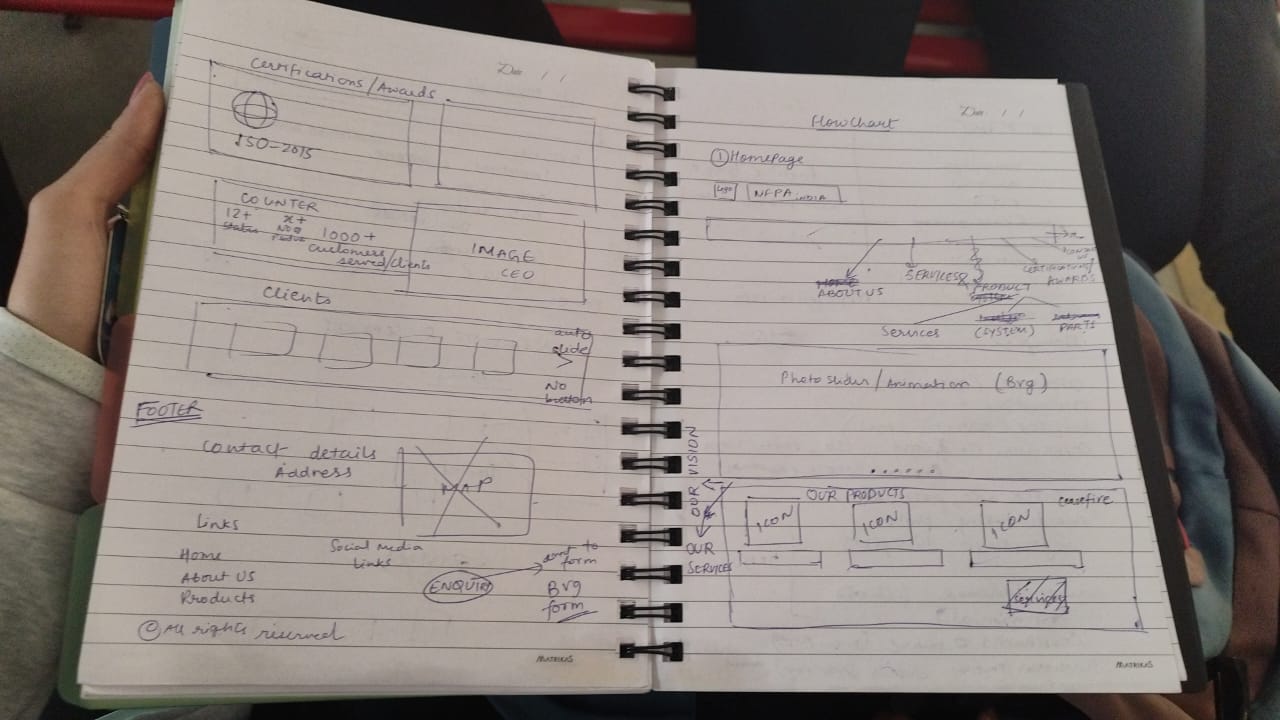 Certifications/Awards
Date / /
ISO-2015
COUNTER
12+
x+
1000+
customers
served/clients
IMAGE
CEO
Clients
auto
slide
>
No
button
FOOTER
Contact details
Address
MAP
Links
Social media
Links
Home
About US
Products
ENQUIRY
form
Brg
form
© All rights reserved
MATRIKAS
Date / /
Flowchart
① Homepage
Logo
NFPA INDIA
ABOUT US
SERVICES
PRODUCT
CERTIFICATIONS/
AWARDS
Services
(SYSTEM)
PARTS
Photo slider/Animation (Brg)
OUR VISION
OUR
SERVICES
OUR PRODUCTS
ceasefire
ICON
ICON
ICON
services
MATRIKAS